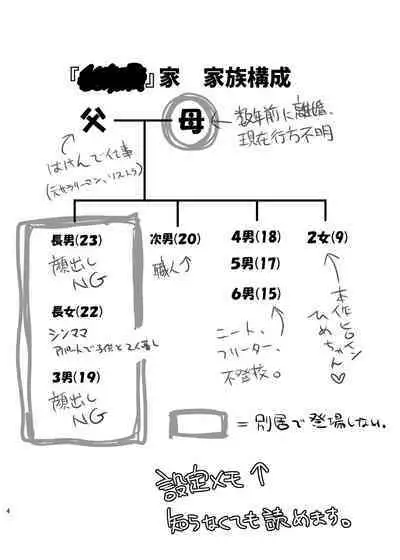 『
』家 家族構成
父
母
数年前に離婚、
現在行方不明
はけんで仕事
(元サラリーマン、リストラ)
長男(23)
顔出し
NG
長女(22)
シンママ
アパートで子供と2人暮し
3男(19)
顔出し
NG
次男(20)
職人↑
4男(18)
5男(17)
6男(15)
ニート、
フリーター、
不登校。
2女(9)
本作ヒロイン
ひめちゃん♡
= 別居で登場しない。
設定メモ↑
知らなくても読めます。
4